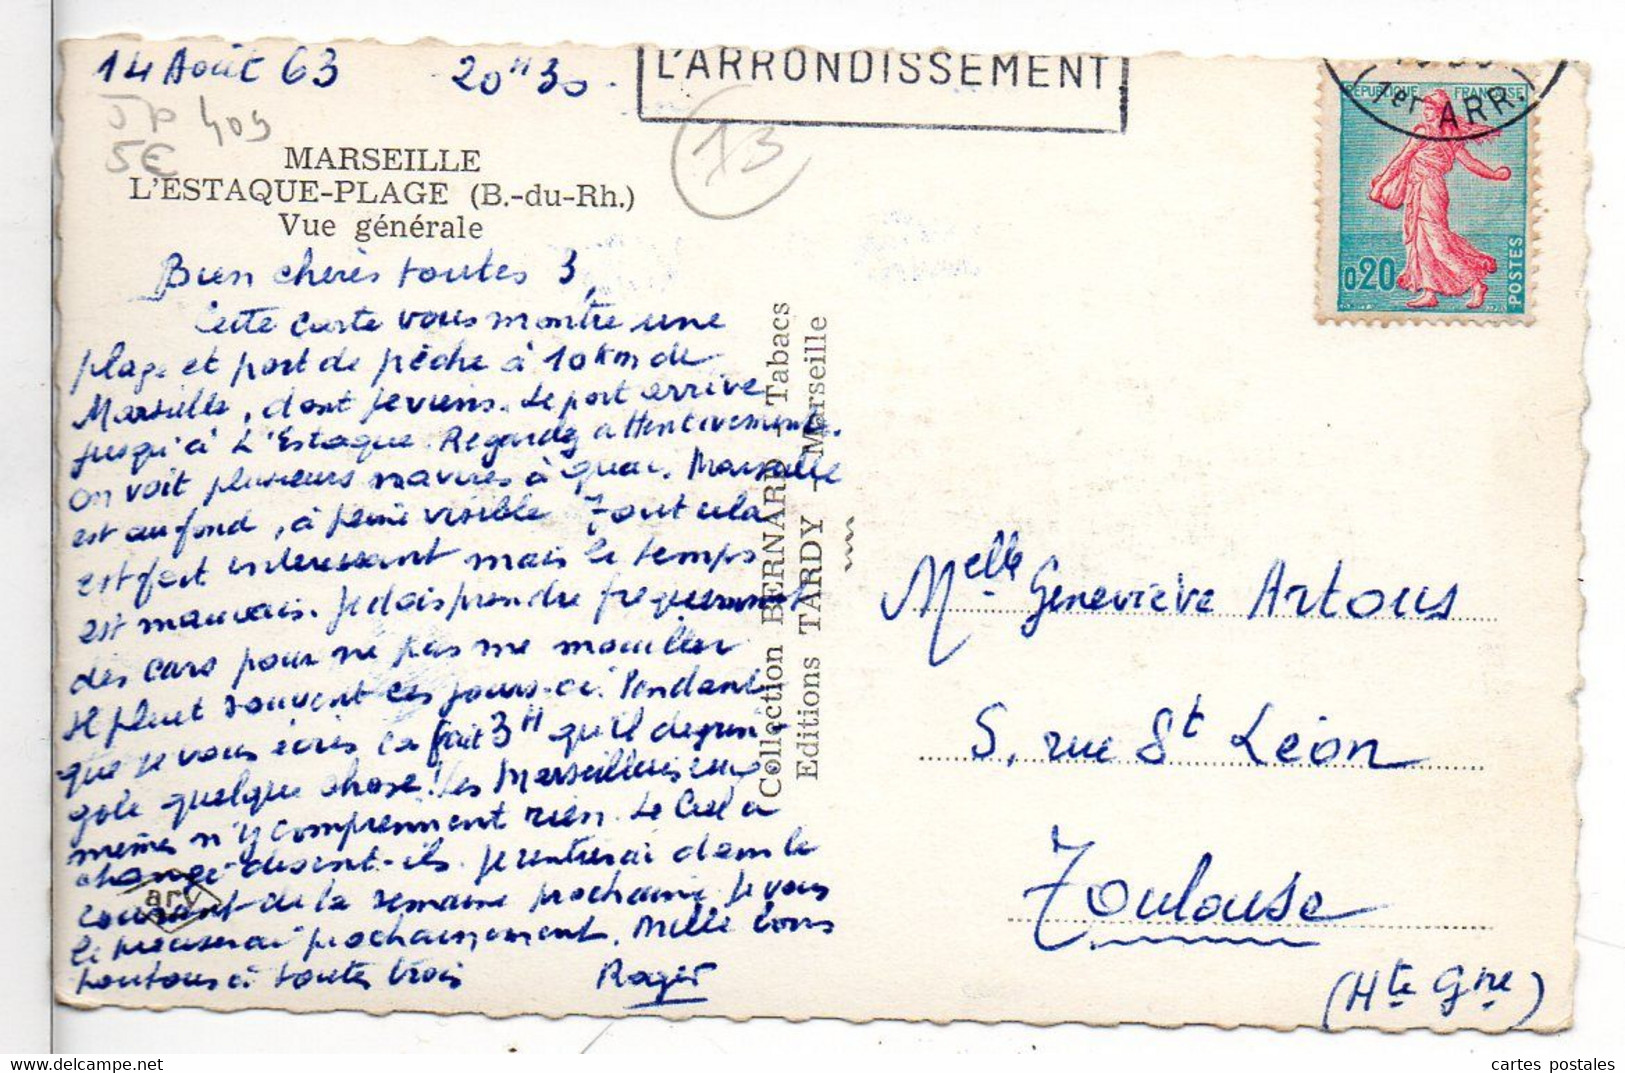 14 Août 63 20H30.
L'ARRONDISSEMENT
1er ARR.
RÉPUBLIQUE FRANÇAISE
0,20
POSTES
JP 409
5€
13
MARSEILLE
L'ESTAQUE-PLAGE (B.-du-Rh.)
Vue générale
Bien chères toutes 3,
Cette carte vous montre une
plage et port de pêche à 10 km de
Marseille, dont je viens. Le port arrive
jusqu'à L'Estaque. Regardez attentivement.
On voit plusieurs navires à quai. Marseille
est au fond, à peine visible. Tout cela
est fort intéressant mais le temps
est mauvais. Je dois prendre fréquemment
des cars pour ne pas me mouiller
Il pleut souvent ces jours-ci. Pendant
que je vous écris ça fait 3H qu'il dégrin-
gole quelque chose! Les Marseillais eux
mêmes n'y comprennent rien. Le Ciel a
changé disent-ils. Je rentrerai dans le
courant de la semaine prochaine. Je vous
le préciserai prochainement. Mille bons
toutous à toutes trois
Roger
arv
Collection BERNARD - Tabacs
Editions TARDY - Marseille
Melle Geneviève Artous
5, rue St Léon
Toulouse
(Hte Gne)
cartes postales